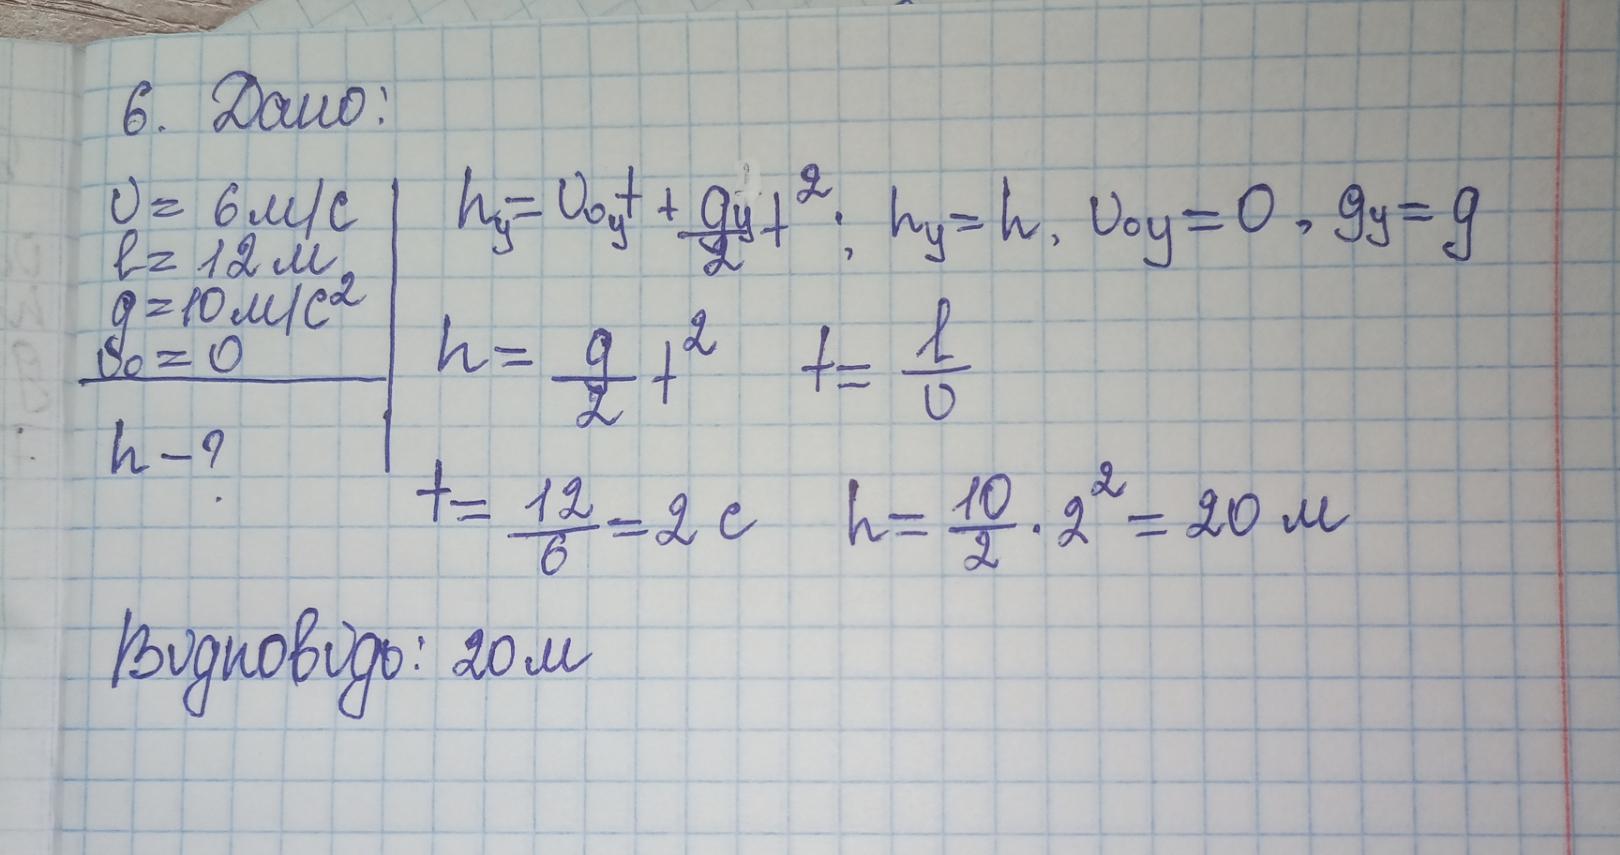 6. Дано:
υ = 6 м/с
l = 12 м
g = 10 м/с²
υ₀ = 0
h - ?
hy = υ₀yt + gy/2 t²; hy = h, υ₀y = 0, gy = g
h = g/2 t² t = l/υ
t = 12/6 = 2 с h = 10/2 · 2² = 20 м
Відповідь: 20 м